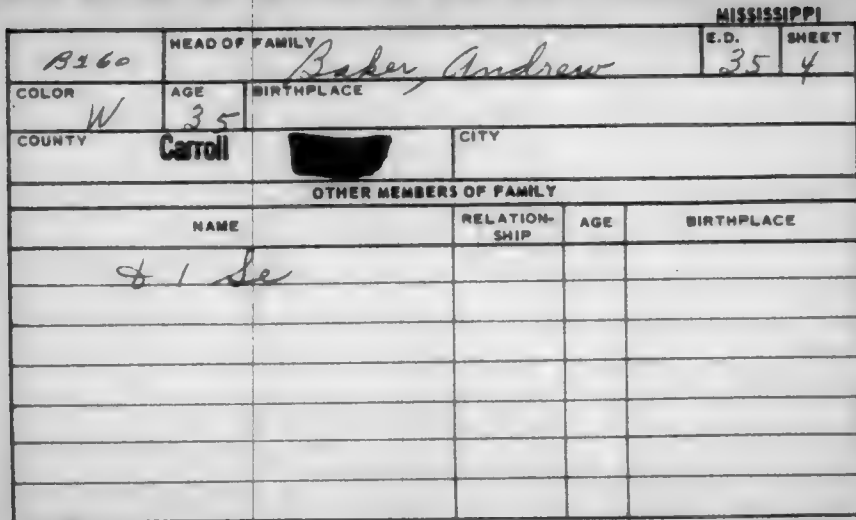 MISSISSIPPI
B260 HEAD OF FAMILY Baker, Andrew E.D. 35 SHEET 4
COLOR W AGE 35 BIRTHPLACE
COUNTY Carroll CITY
OTHER MEMBERS OF FAMILY
NAME RELATION-SHIP AGE BIRTHPLACE
& 1 Se